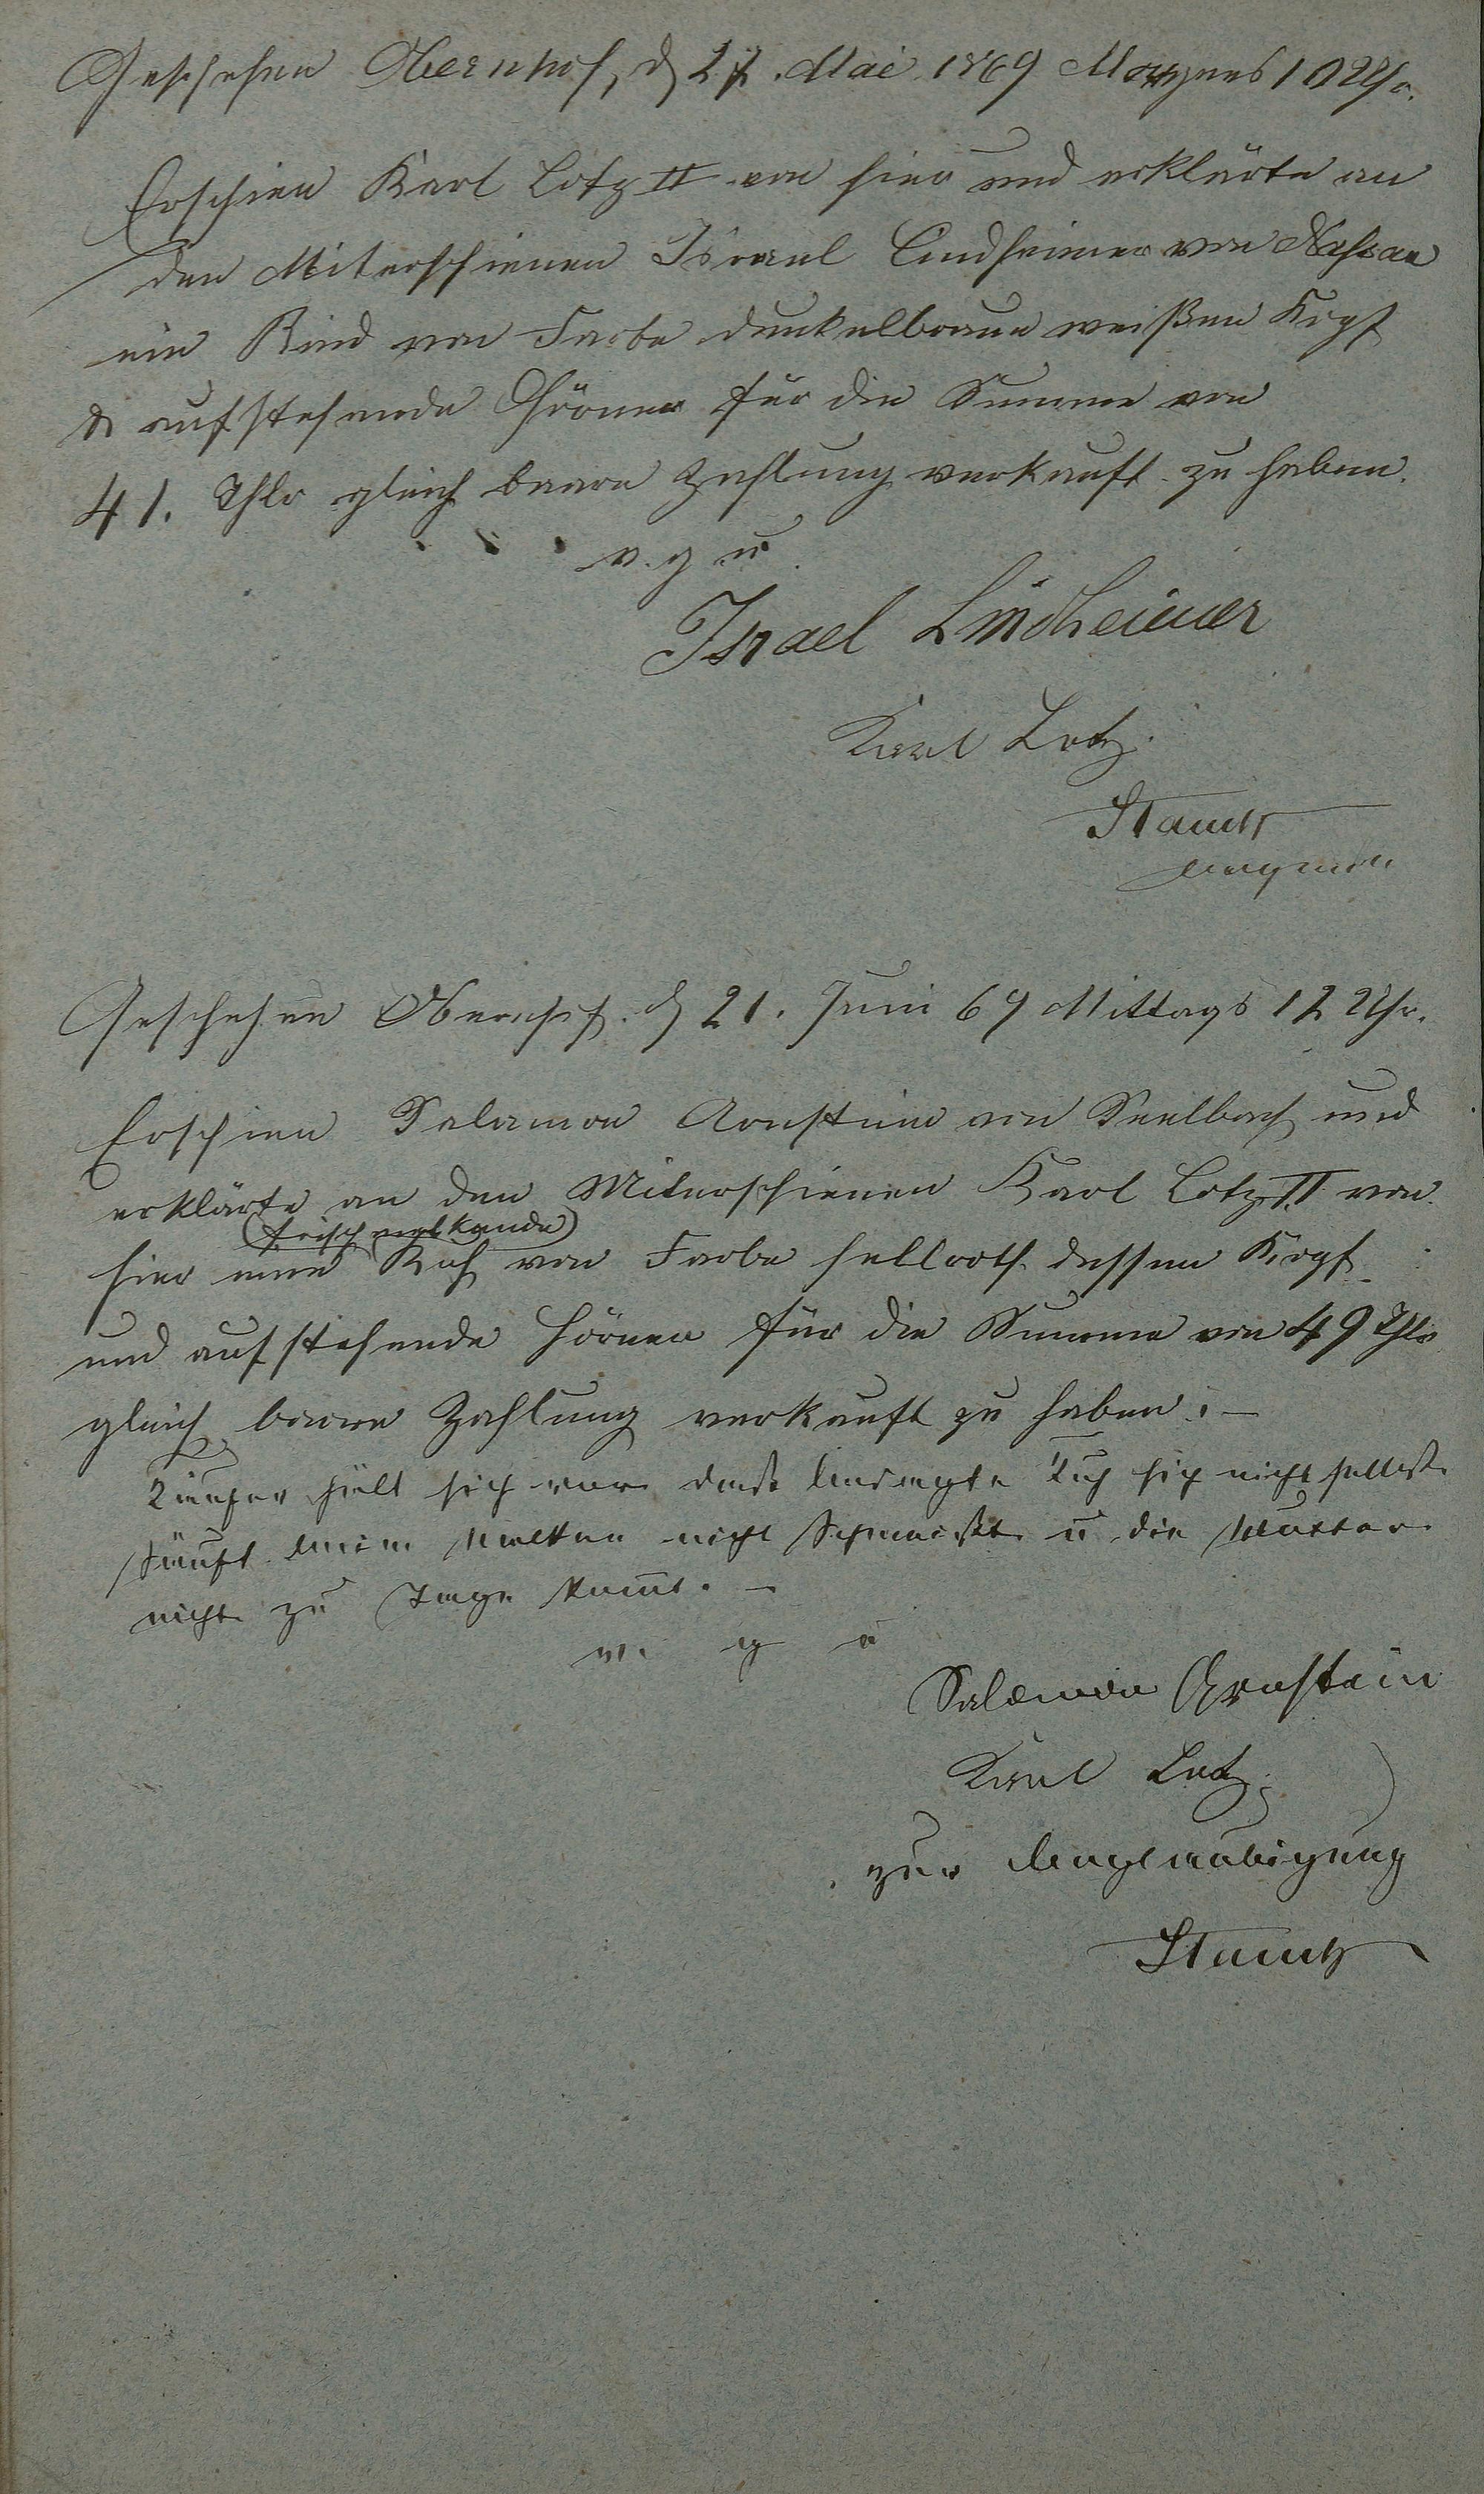 Geschehen Obernhof, d 27. Mai 1869 Morgens 10 Uhr.
Erschien Karl Lotz II von hier und erklärte an
den Miterschienen Israel Lindheimer von Nassau
ein Rind von Farbe dunkelbraun weißen Kopf
& aufstehende Hörner für die Summe von
41. Thlr gleich baare Zahlung verkauft zu haben.
v. g u.
Israel Lindheimer
Karl Lotz.
Geschehen Obernhof. d 21. Juni 69 Mittags 12 Uhr.
Erschien Salamon Arnstein von Seelbach und
erklärte an den Miterschienen Karl Lotz II von
(frisch
hier eine Kuh von Farbe hellroth dessen Kopf
und aufstehende Hörner für die Summe von 49 Thlr
gleich baare Zahlung verkauft zu haben. –
Käufer hält sich vor daß besagte Kuh sich nicht selbst
säuft beim Melken nicht schmeißt u die Mutter
nicht zu Tage kommt. –
v. g u
Salomon Arnstein
Karl Lotz.
zur Beglaubigung